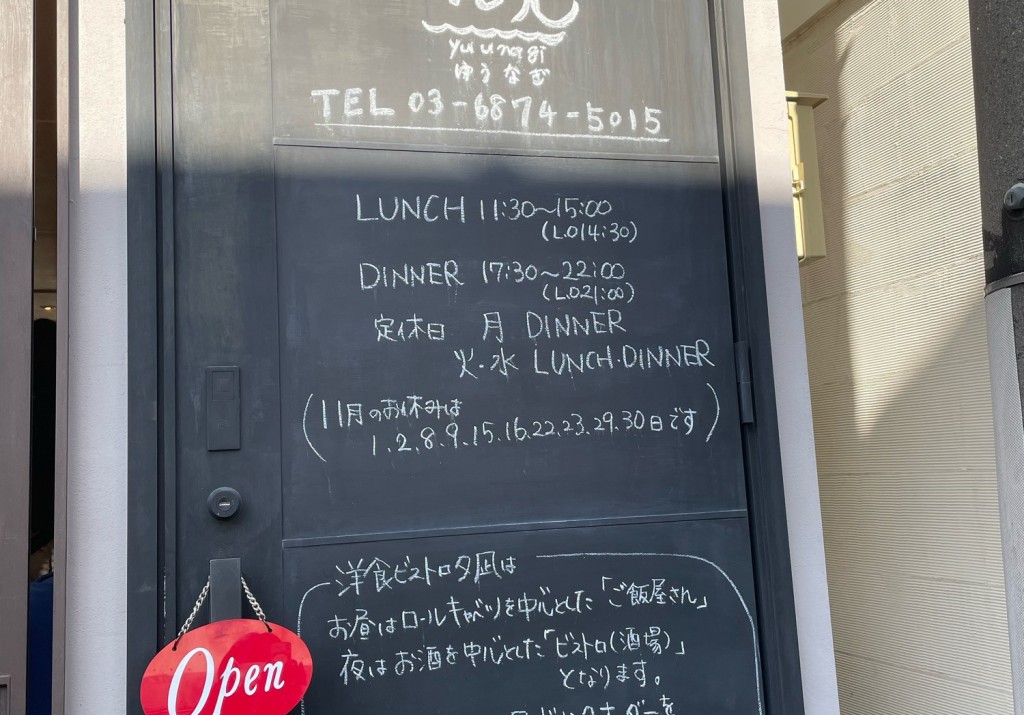 yuunagi
ゆうなぎ
TEL 03-6874-5015
LUNCH 11:30~15:00
(L.O14:30)
DINNER 17:30~22:00
(L.O21:00)
定休日 月 DINNER
火・水 LUNCH・DINNER
(11月のお休みは
1.2.8.9.15.16.22.23.29.30日です)
洋食ビストロ夕凪は
お昼はロールキャベツを中心とした「ご飯屋さん」
夜はお酒を中心とした「ビストロ(酒場)」
となります。
Open